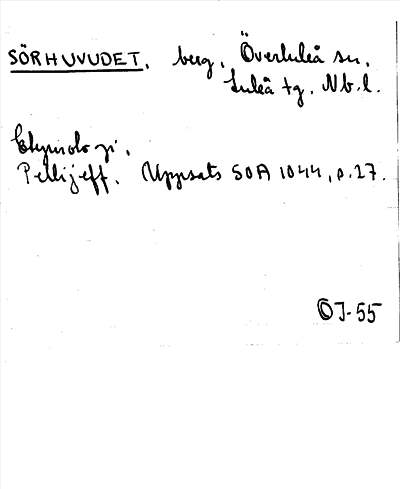 SÖRHUVUDET, berg, Överluleå sn,
Luleå tg. Nb. l.
Etymologi.
Pellijeff. Uppsats SOA 1044, p. 27.
OJ-55